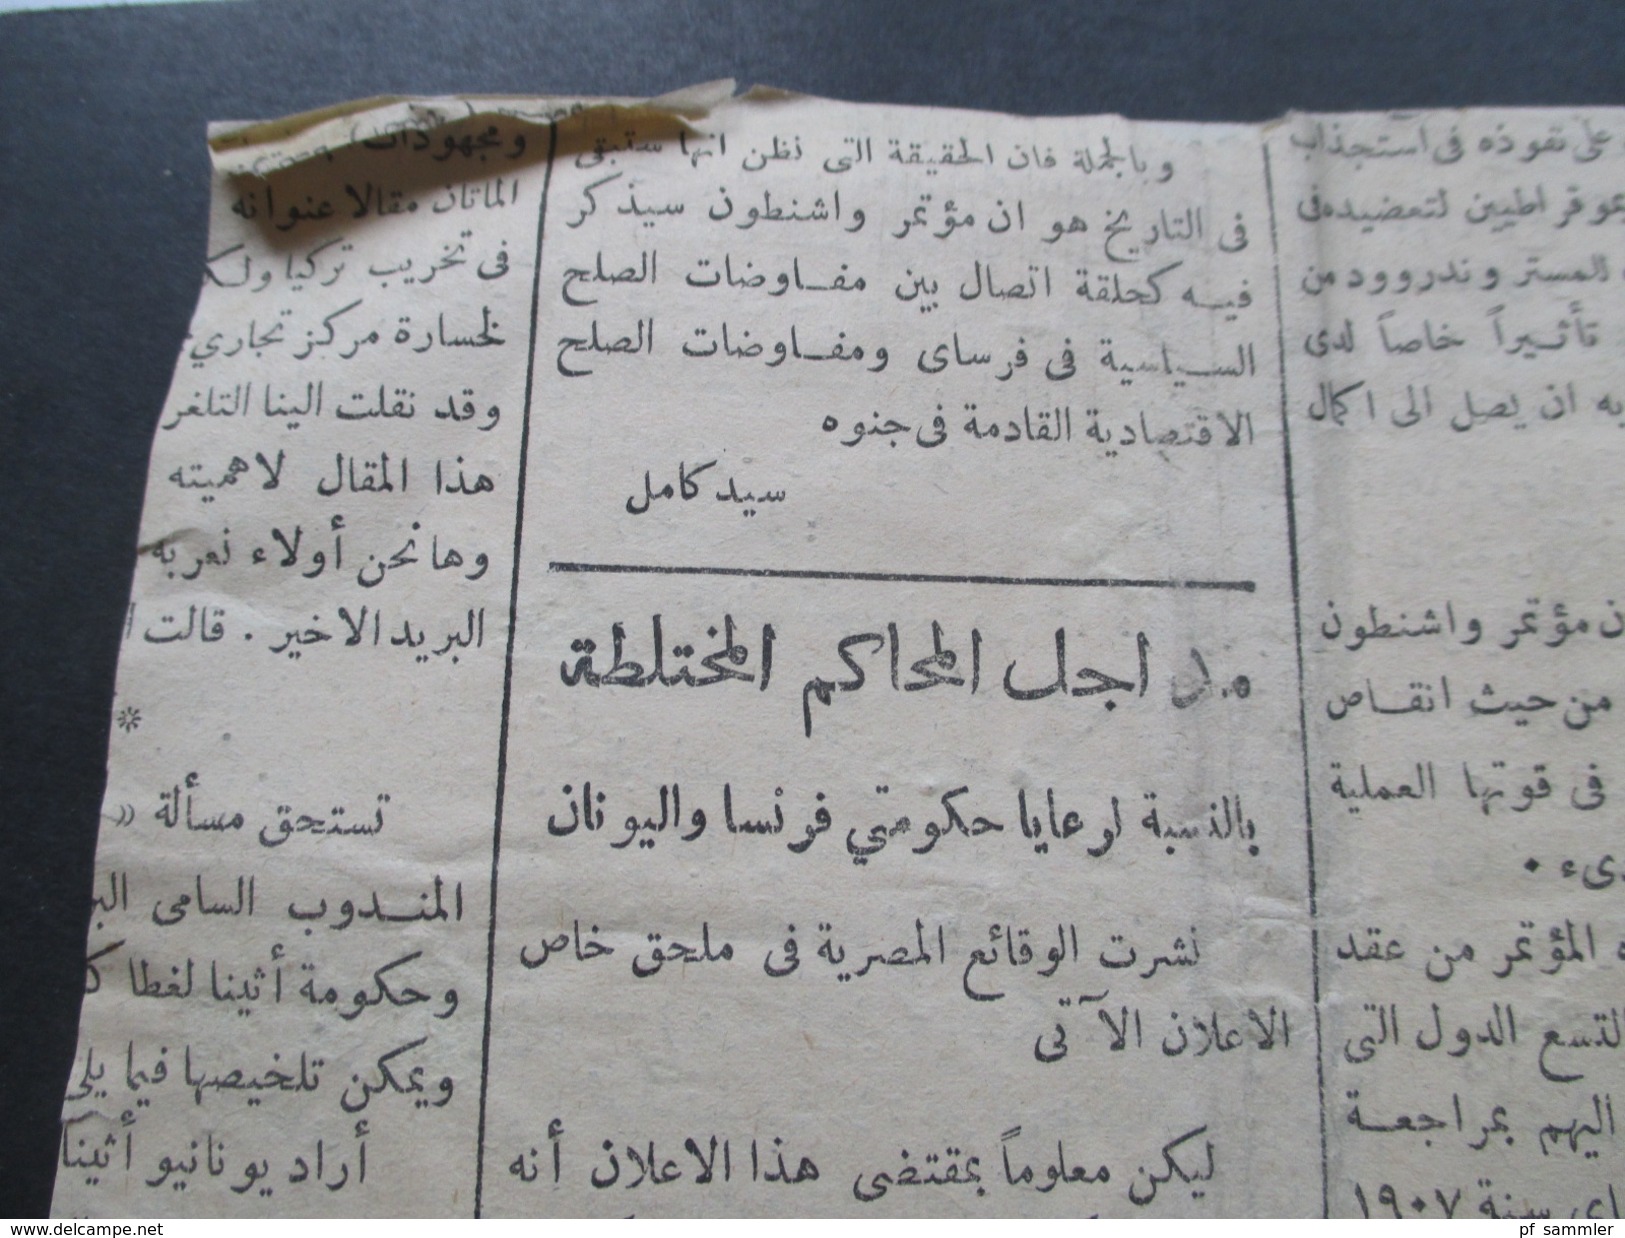 على نفوذه فى استجذاب
لتعضيده فى
المستر وندروود من
تأثيراً خاصاً لدى
ان يصل الى اكمال
مؤتمر واشنطون
من حيث انقاص
فى قوتها العملية
المؤتمر من عقد
التسع الدول التى
اليهم بمراجعة
سنة ١٩٠٧
وبالجملة فان الحقيقة التى نظن انها ستبقى
فى التاريخ هو ان مؤتمر واشنطون سيذكر
فيه كحلقة اتصال بين مفاوضات الصلح
السياسية فى فرساى ومفاوضات الصلح
الاقتصادية القادمة فى جنوه
سيد كامل
مد اجل المحاكم المختلطة
بالنسبة لرعايا حكومتي فرنسا واليونان
نشرت الوقائع المصرية فى ملحق خاص
الاعلان الآتى
ليكن معلوماً بمقتضى هذا الاعلان أنه
ومجهودات
الماتان مقالا عنوانه
فى تخريب تركيا ولك
لخسارة مركز تجاري
وقد نقلت الينا التلغر
هذا المقال لاهميته
وها نحن أولاء نعربه
البريد الاخير . قالت ا
*
تستحق مسألة «
المندوب السامى البر
وحكومة أثينا لغطا ك
ويمكن تلخيصها فيما يلى
أراد يونانيو أثينا
www.delcampe.net
pf_sammler